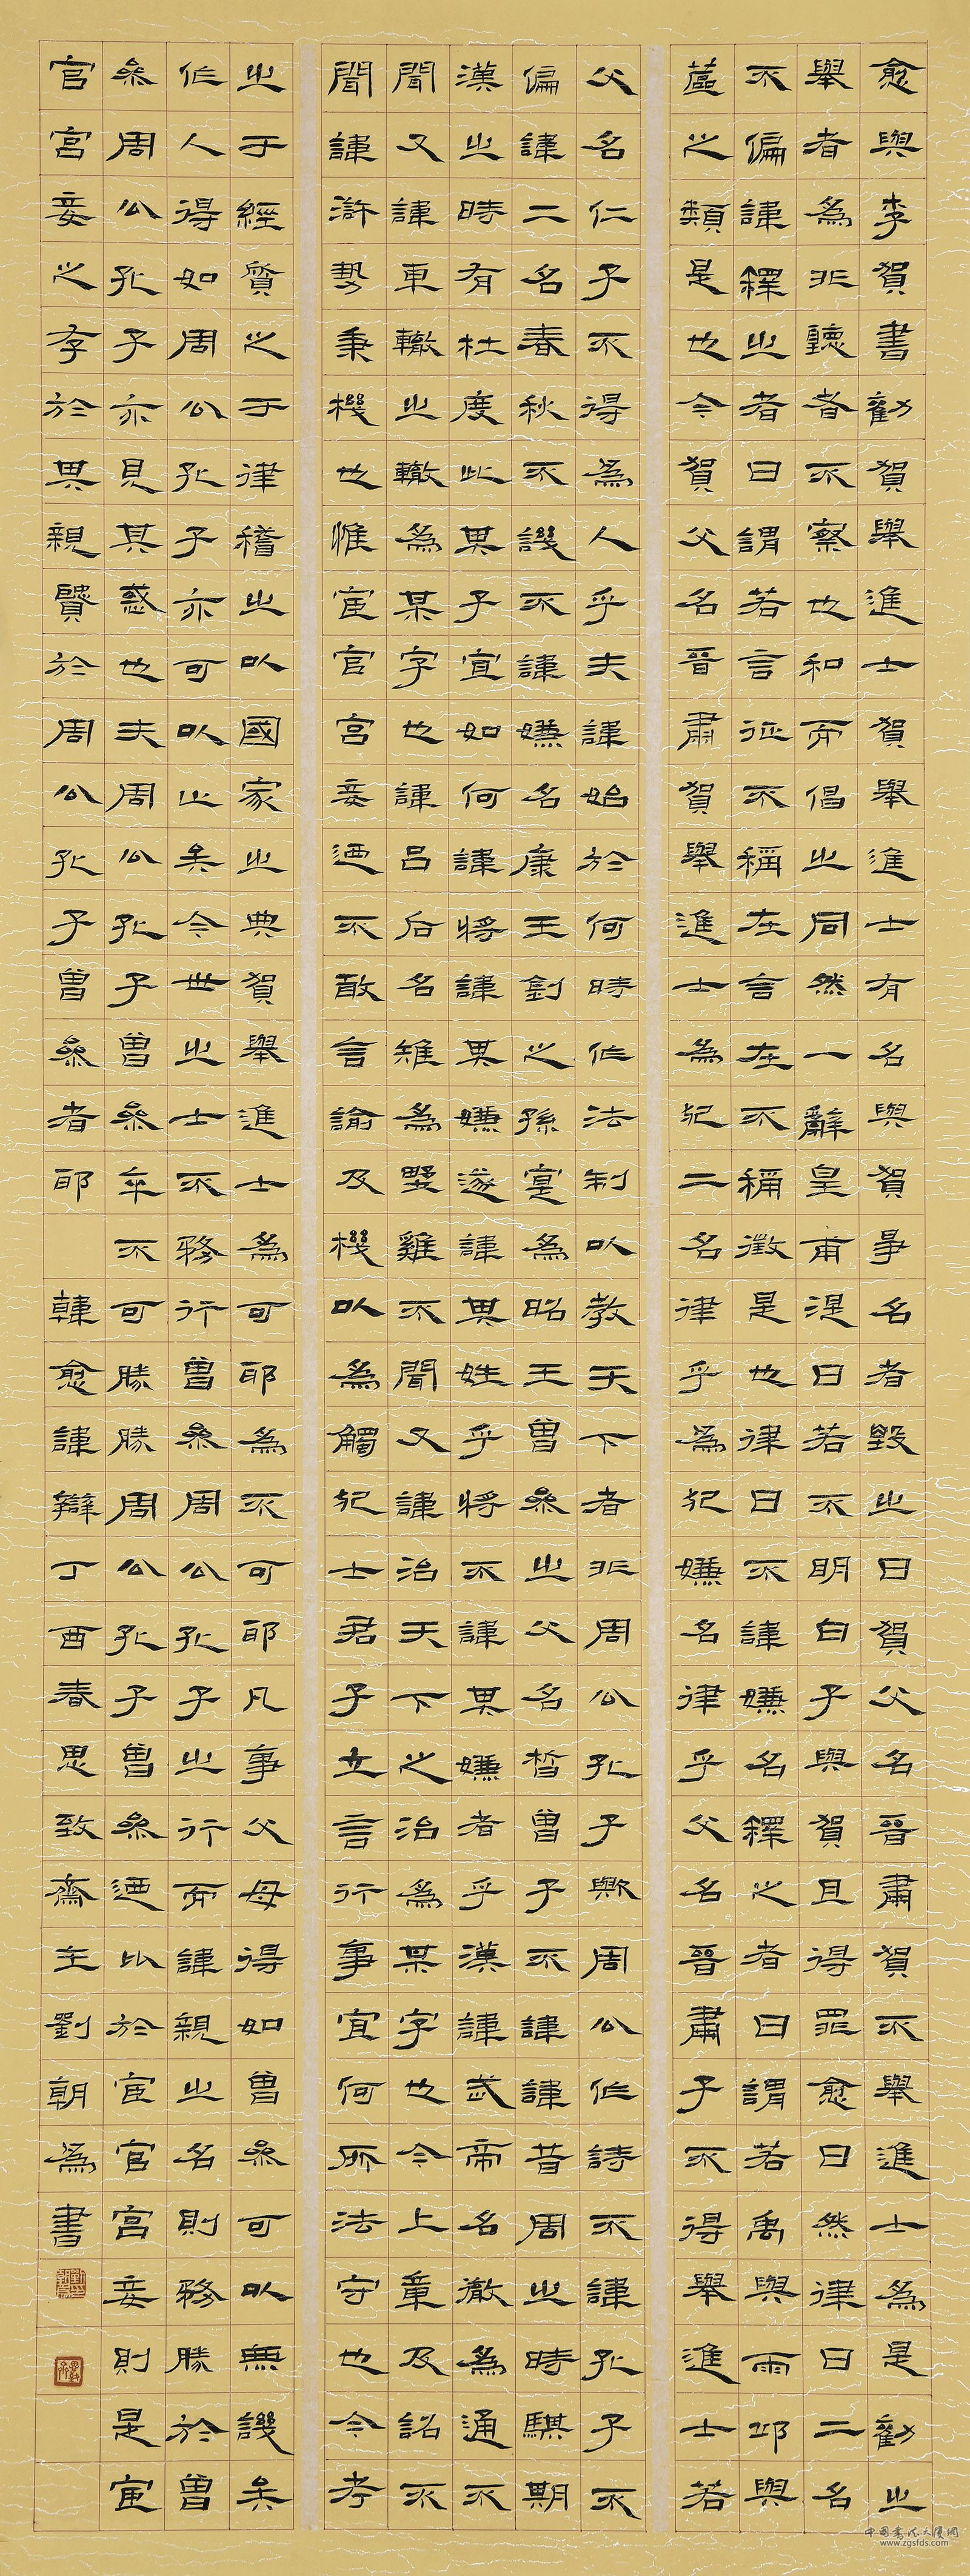 愈與李賀書勸賀舉進士賀舉進士有名與賀爭名者毀之曰賀父名晉肅賀不舉進士為是勸之
舉者為非聽者不察也和而倡之同然一辭皇甫湜曰若不明白子與賀且得罪愈曰然律曰二名
不偏諱釋之者曰謂若言征不稱在言在不稱徵是也律曰不諱嫌名釋之者曰謂若禹與雨邱與
蓲之類是也今賀父名晉肅賀舉進士為犯二名律乎為犯嫌名律乎父名晉肅子不得舉進士若
父名仁子不得為人乎夫諱始於何時作法制以教天下者非周公孔子歟周公作詩不諱孔子不
偏諱二名春秋不譏不諱嫌名康王釗之孫寔為昭王曾參之父名皙曾子不諱諱昔周之時騏期
漢之時有杜度此其子宜如何諱將諱其嫌遂諱其姓乎將不諱其嫌者乎漢諱武帝名徹為通不
聞又諱車轍之轍為某字也諱呂后名雉為野雞不聞又諱治天下之治為某字也今上章及詔不
聞諱滸勢秉機也惟宦官宮妾迺不敢言諭及機以為觸犯士君子立言行事宜何所法守也今考
之于經質之于律稽之以國家之典賀舉進士為可耶為不可耶凡事父母得如曾參可以無譏矣
作人得如周公孔子亦可以止矣今世之士不務行曾參周公孔子之行而諱親之名則務勝於曾
參周公孔子亦見其惑也夫周公孔子曾參卒不可勝勝周公孔子曾參迺比於宦官宮妾則是宦
官宮妾之孝於其親賢於周公孔子曾參者耶 韓愈諱辯丁酉春思致齋主劉朝為書
中国书法大厦网
www.zgsfds.com